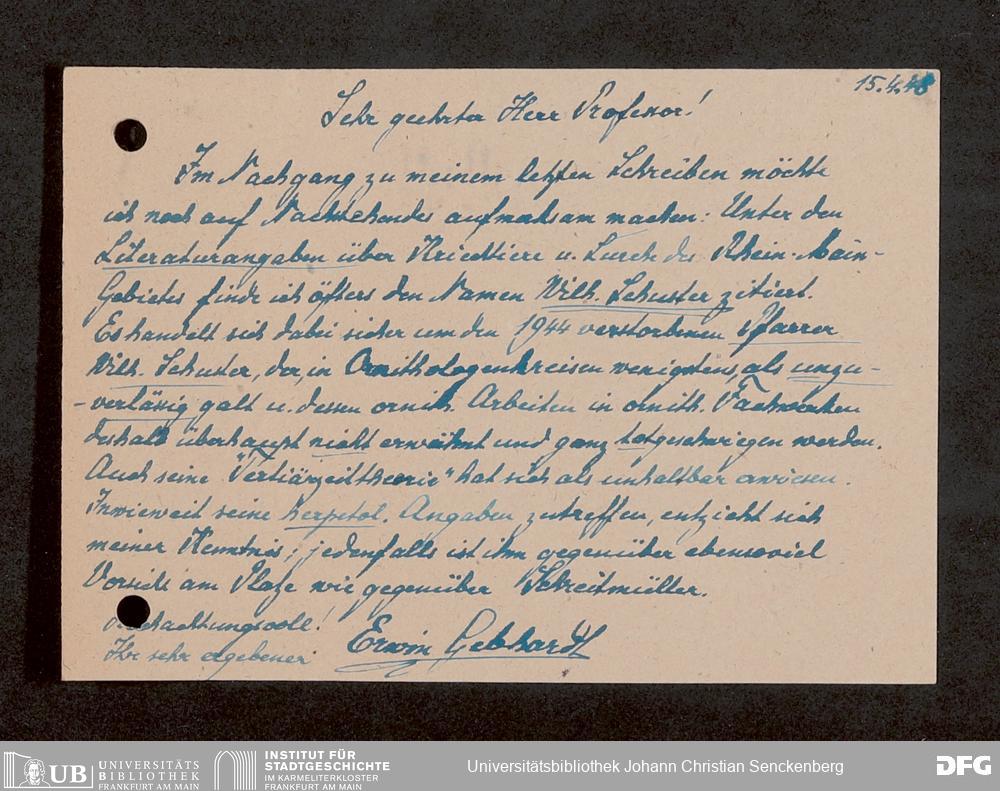 15.4.48
Sehr geehrter Herr Professor!
Im Nachgang zu meinem letzten Schreiben möchte
ich noch auf Nachstehendes aufmerksam machen: Unter den
Literaturangaben über Kriechtiere u. Lurche des Rhein-Main-
Gebietes finde ich öfters den Namen Wilh. Schuster zitiert.
Es handelt sich dabei sicher um den 1944 verstorbenen Pfarrer
Wilh. Schuster, der, in Ornithologenkreisen wenigstens, als unzu-
-verlässig galt u. dessen ornith. Arbeiten in ornith. Fachwerken
deshalb überhaupt nicht erwähnt und ganz totgeschwiegen werden.
Auch seine "Tertiärzeittheorie" hat sich als unhaltbar erwiesen.
Inwieweit seine herpetol. Angaben zutreffen, entzieht sich
meiner Kenntnis; jedenfalls ist ihm gegenüber ebensoviel
Vorsicht am Platze wie gegenüber Schreitmüller.
Hochachtungsvoll!
Ihr sehr ergebener Erwin Gebhardt
UB UNIVERSITÄTS
BIBLIOTHEK
FRANKFURT AM MAIN
INSTITUT FÜR
STADTGESCHICHTE
IM KARMELITERKLOSTER
FRANKFURT AM MAIN
Universitätsbibliothek Johann Christian Senckenberg
DFG